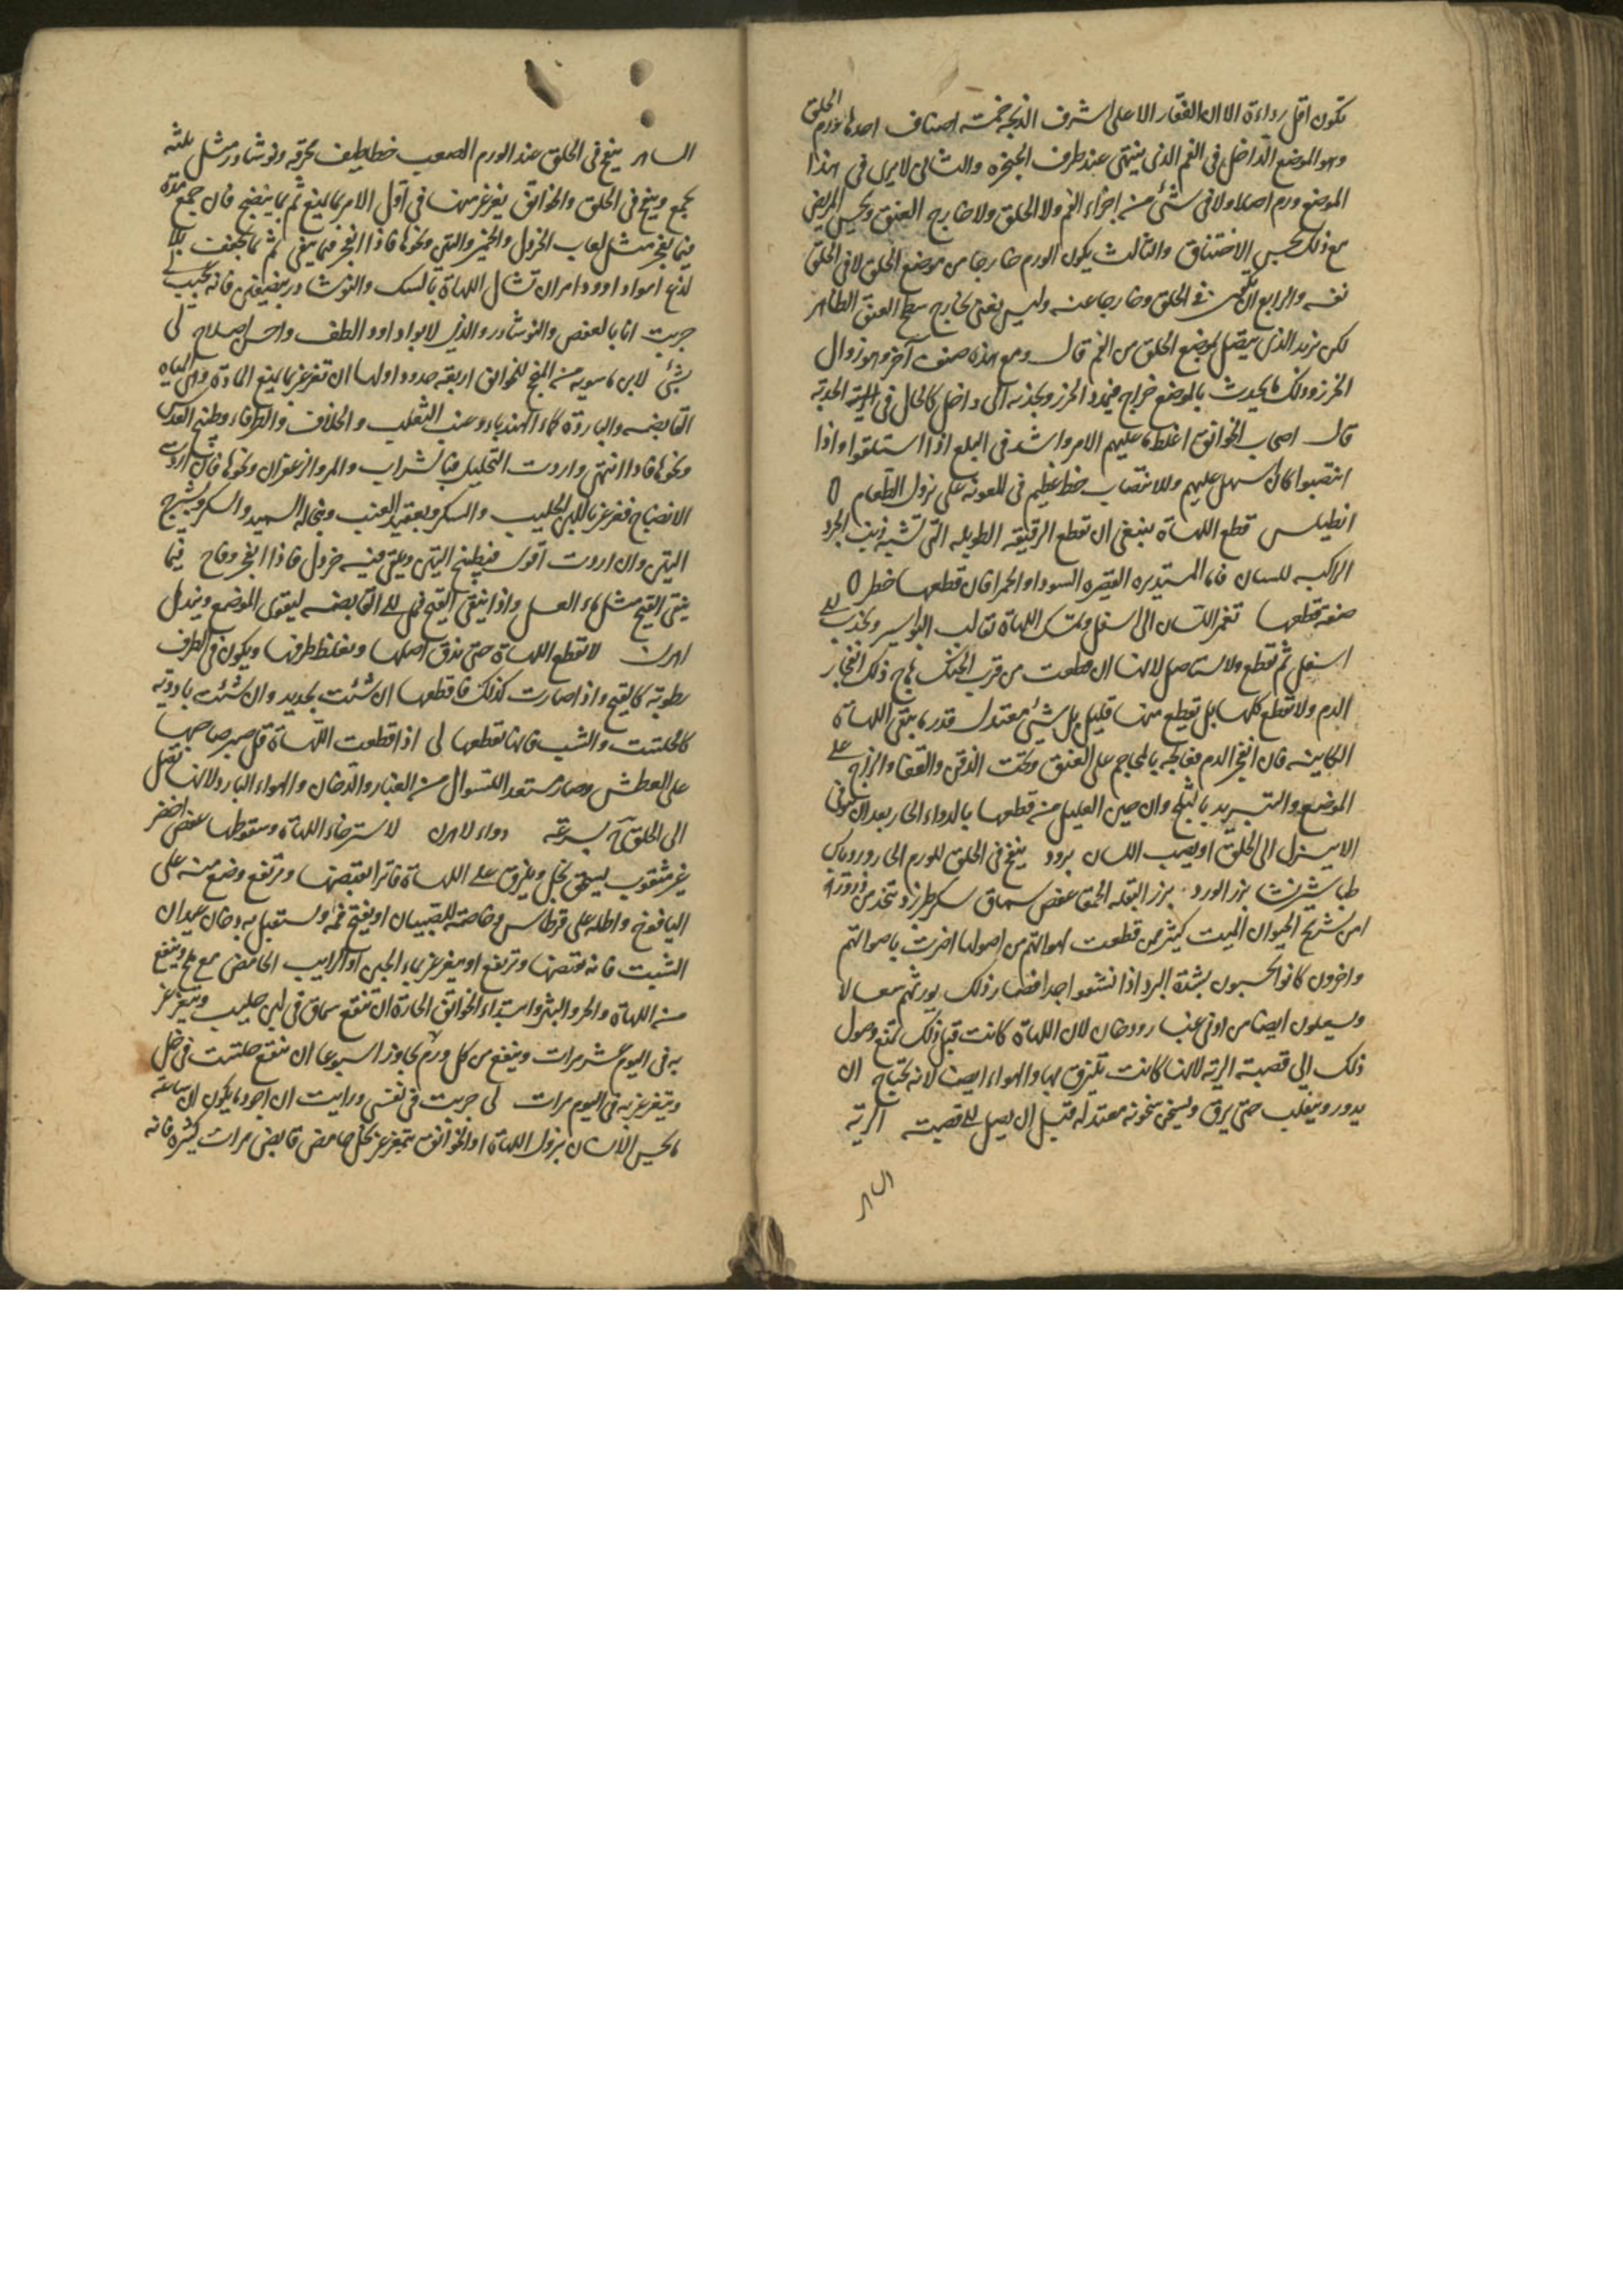 تكون اقل رداءة الا ان الفقار الاعلى اشرف الذبحة خمسة اصناف احدها ورم الحلق
وهو الموضع الداخل فى الفم الذى ينتهى عند طرف الحنجرة والثانى لا يرى فى هذا
الموضع ورم اصلا ولا فى شئ من اجزاء الفم ولا الحلق ولا خارج العنق ويحس المريض
مع ذلك بحس الاختناق والثالث يكون الورم خارجا من موضع الحلق لا فى الحلق
نفسه والرابع ان يكون فى الحلق وخارجا عنه وليس يعنى بخارج سطح العنق الظاهر
لكن نريد الذى يتصل بموضع الحلق من الفم قال ومع هذه صنف آخر وهو زوال
الخرز وذلك يحدث بالموضع خراج فيمدد الخرز ويجذبه الى داخل كالحال فى الحدبة
قال اصحاب الخوانيق اغلظ ما عليهم الامر واشد فى البلع اذا استلقوا واذا
انتصبوا كان اسهل عليهم وللانتصاب حظ عظيم فى المعونة على نزول الطعام
انطيلس قطع اللهاة ينبغى ان تقطع الرقيقة الطويلة التى تشبه ذنب الجرذ
الراكبة للسان فاما المستديرة القصيرة السودا والحمرا فان قطعها خطر
صفة قطعها تغمز اللسان الى اسفل وتمسك اللهاة بقالب البواسير وتجذب الى
اسفل ثم تقطع ولا تستاصل لانها ان قطعت من قرب الحنك هاج ذلك انفجار
الدم ولا تقطع كلها بل تقطع منها قليل بل شئ معتدل قدر ما تبقى اللهاة
الكاينة فان انفجر الدم فعالجه بالمحاجم على العنق وتحت الذقن والقفا والزاج على
الموضع والتبريد بالثلج وان جبن العليل من قطعها بالدواء الحار بعد ان توقى
الا ينزل الى الحلق او يصيب اللسان برود ينفخ فى الحلق للورم الحار ورد يابس
طباشير نشا بزر الورد بزر البقلة الحمقا عفص سماق سكر طبرزد تتخذ منه ذرورة
من تشريح الحيوان الميت كثير ممن قطعت لهواتهم من اصولها اضرت باصواتهم
واخرون كانوا يحسبون بشدة البرد اذا نشموا جدا فصار ذلك يورثهم سعالا
ويسعلون ايضا من ادنى غبار ودخان لان اللهاة كانت قبل ذلك تمنع وصول
ذلك الى قصبة الرية لانها كانت تلتزق بها والهواء ايضا لانه يحتاج ان
يدور وينقلب حتى يرق ويسخن سخونة معتدلة قبل ان يصل الى قصبة الرية
الساهر
الساهر ينفخ فى الحلق عند الورم الصعب خطاطيف محرقة ونوشادر مثل ثلثه
يجمع وينفخ فى الحلق والخوانيق يغرغر منها فى اول الامر بما يمنع ثم بما ينضج فان جمع مدة
فبما يفجر مثل لعاب الخردل والخمير والتين ونحوها فاذا انفجر فبما ينقى ثم بما يجفف بلا
لذع اهوا داوود امر ان تشال اللهاة بالسك والنوشادر بنصيفين فانه عجيب لى
جربت انا بالعفص والنوشادر والذى لابو داوود الطف واحسن اصلاح لى
بشئ لابن ماسويه من المنجح للخوانيق اربعة حدود اولها ان تغرغر بما يمنع المادة وهى المياه
القابضة والباردة كماء الهندباء وعنب الثعلب والخلاف والطرفاء وطبيخ العدس
ونحوها فاذا انتهى واردت التحليل فبالشراب والمر والزعفران ونحوها فان اردت
الانضاج فغرغر باللبن الحليب والسكر وبعقيد العنب ونخالة السميد والسكر وشيرج
التين وان اردت اقوى فبطبيخ التين ويلقى فيه خردل فاذا انفجر وقاح فبما
ينقى القيح مثل ماء العسل واذا تنقى القيح فمل الى القابضة ليقوى الموضع ويندمل
اهرن لا تقطع اللهاة حتى تدق اصلها ويغلظ طرفها ويكون فى الطرف
رطوبة كالقيح واذا صارت كذلك فاقطعها ان شئت بحديد وان شئت بادوية
كالحلتيت والشب فانها تقطعها لى اذا قطعت اللهاة قل صبر صاحبها
على العطش وصار مستعدا للسعال من الغبار والدخان والهواء البارد لانها تصل
الى الحلق سرعة دواء لاهرن لاسترخاء اللهاة وسقوطها عفص اخضر
غير مثقوب يسحق بخل ويلزق على اللهاة فاترا لقبضها وترتفع وضع منه على
اليافوخ واطله على قرطاس وخاصة للصبيان او يفتح فمه ويستقبل به دخان عيدان
الشبت فانه يقبضها وترتفع او يتغرغر بماء الجبن او الرايب الحامض مع ملح وينفع
من اللهاة والحر والبثر وابتداء الخوانيق الحارة ان تنقع سماق فى لبن حليب ويتغرغر
به فى اليوم عشر مرات وينفع من كل ورم يجاوز اسبوعا ان ينقع حلتيت فى خل
ويتغرغر به فى اليوم مرات لى جربت فى نفسى ورايت ان اجود ما يكون ان ساعة
ما يحس الانسان بنزول اللهاة او الخوانيق يتغرغر بخل حامض قابض مرات كثيرة فانه